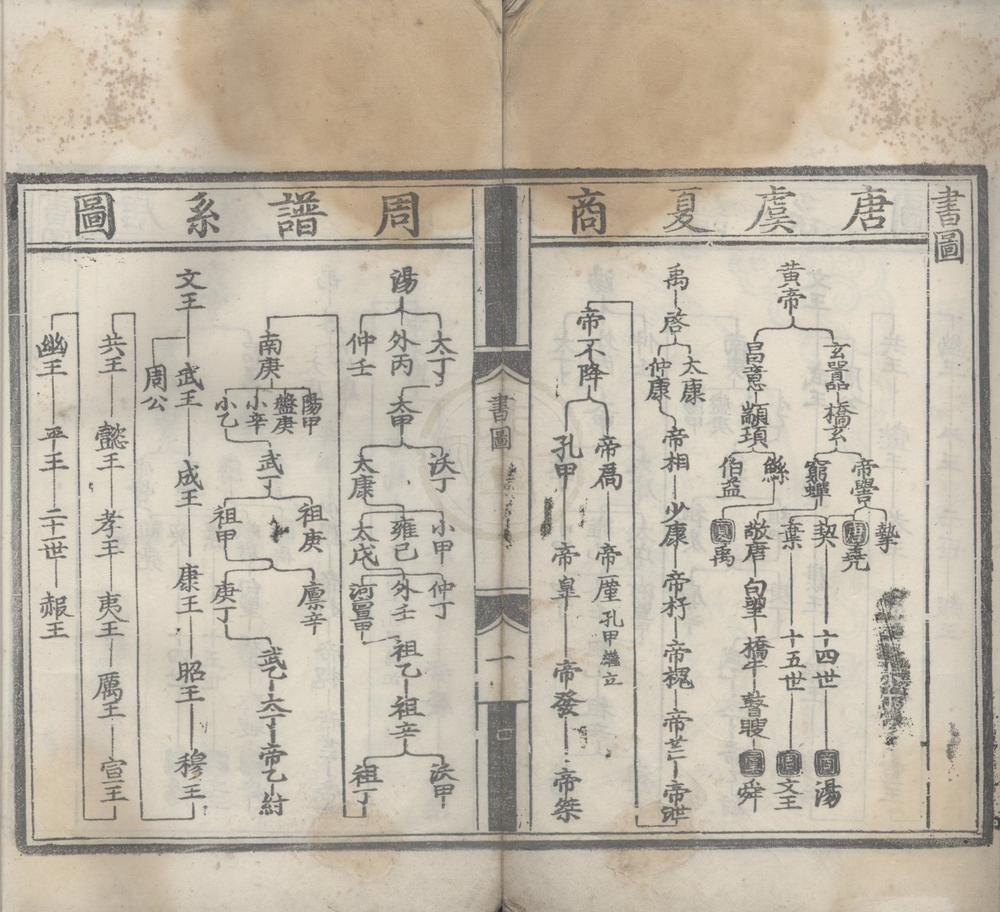 書圖
唐虞夏商
黃帝
玄囂 橋玄
帝嚳
摯
堯
契 十四世 商 湯
棄 十五世 周 文王
窮蟬
敬唐 句望 橋牛 瞽瞍 虞 舜
昌意 顓頊
鯀
伯益
夏 禹
禹 啓
太康
仲康
帝相 少康 帝杼 帝槐 帝芒 帝泄
帝不降
帝扃 帝廑 孔甲繼立
孔甲 帝皐 帝發 帝桀
書圖
一
周譜系圖
湯
太丁
外丙
仲壬
太甲
沃丁
太康
小甲
雍已
太戊
仲丁
外壬
河亶甲
祖乙 祖辛
沃甲
祖丁
南庚
陽甲
盤庚
小辛
小乙
武丁
祖庚
祖甲
廩辛
庚丁
武乙 太丁 帝乙 紂
文王
武王 成王 康王 昭王 穆王
周公
共王 懿王 孝王 夷王 厲王 宣王
幽王 平王 二十一世 赧王